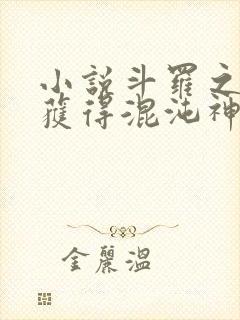 小說斗羅之
獲得混沌神
金麗溫